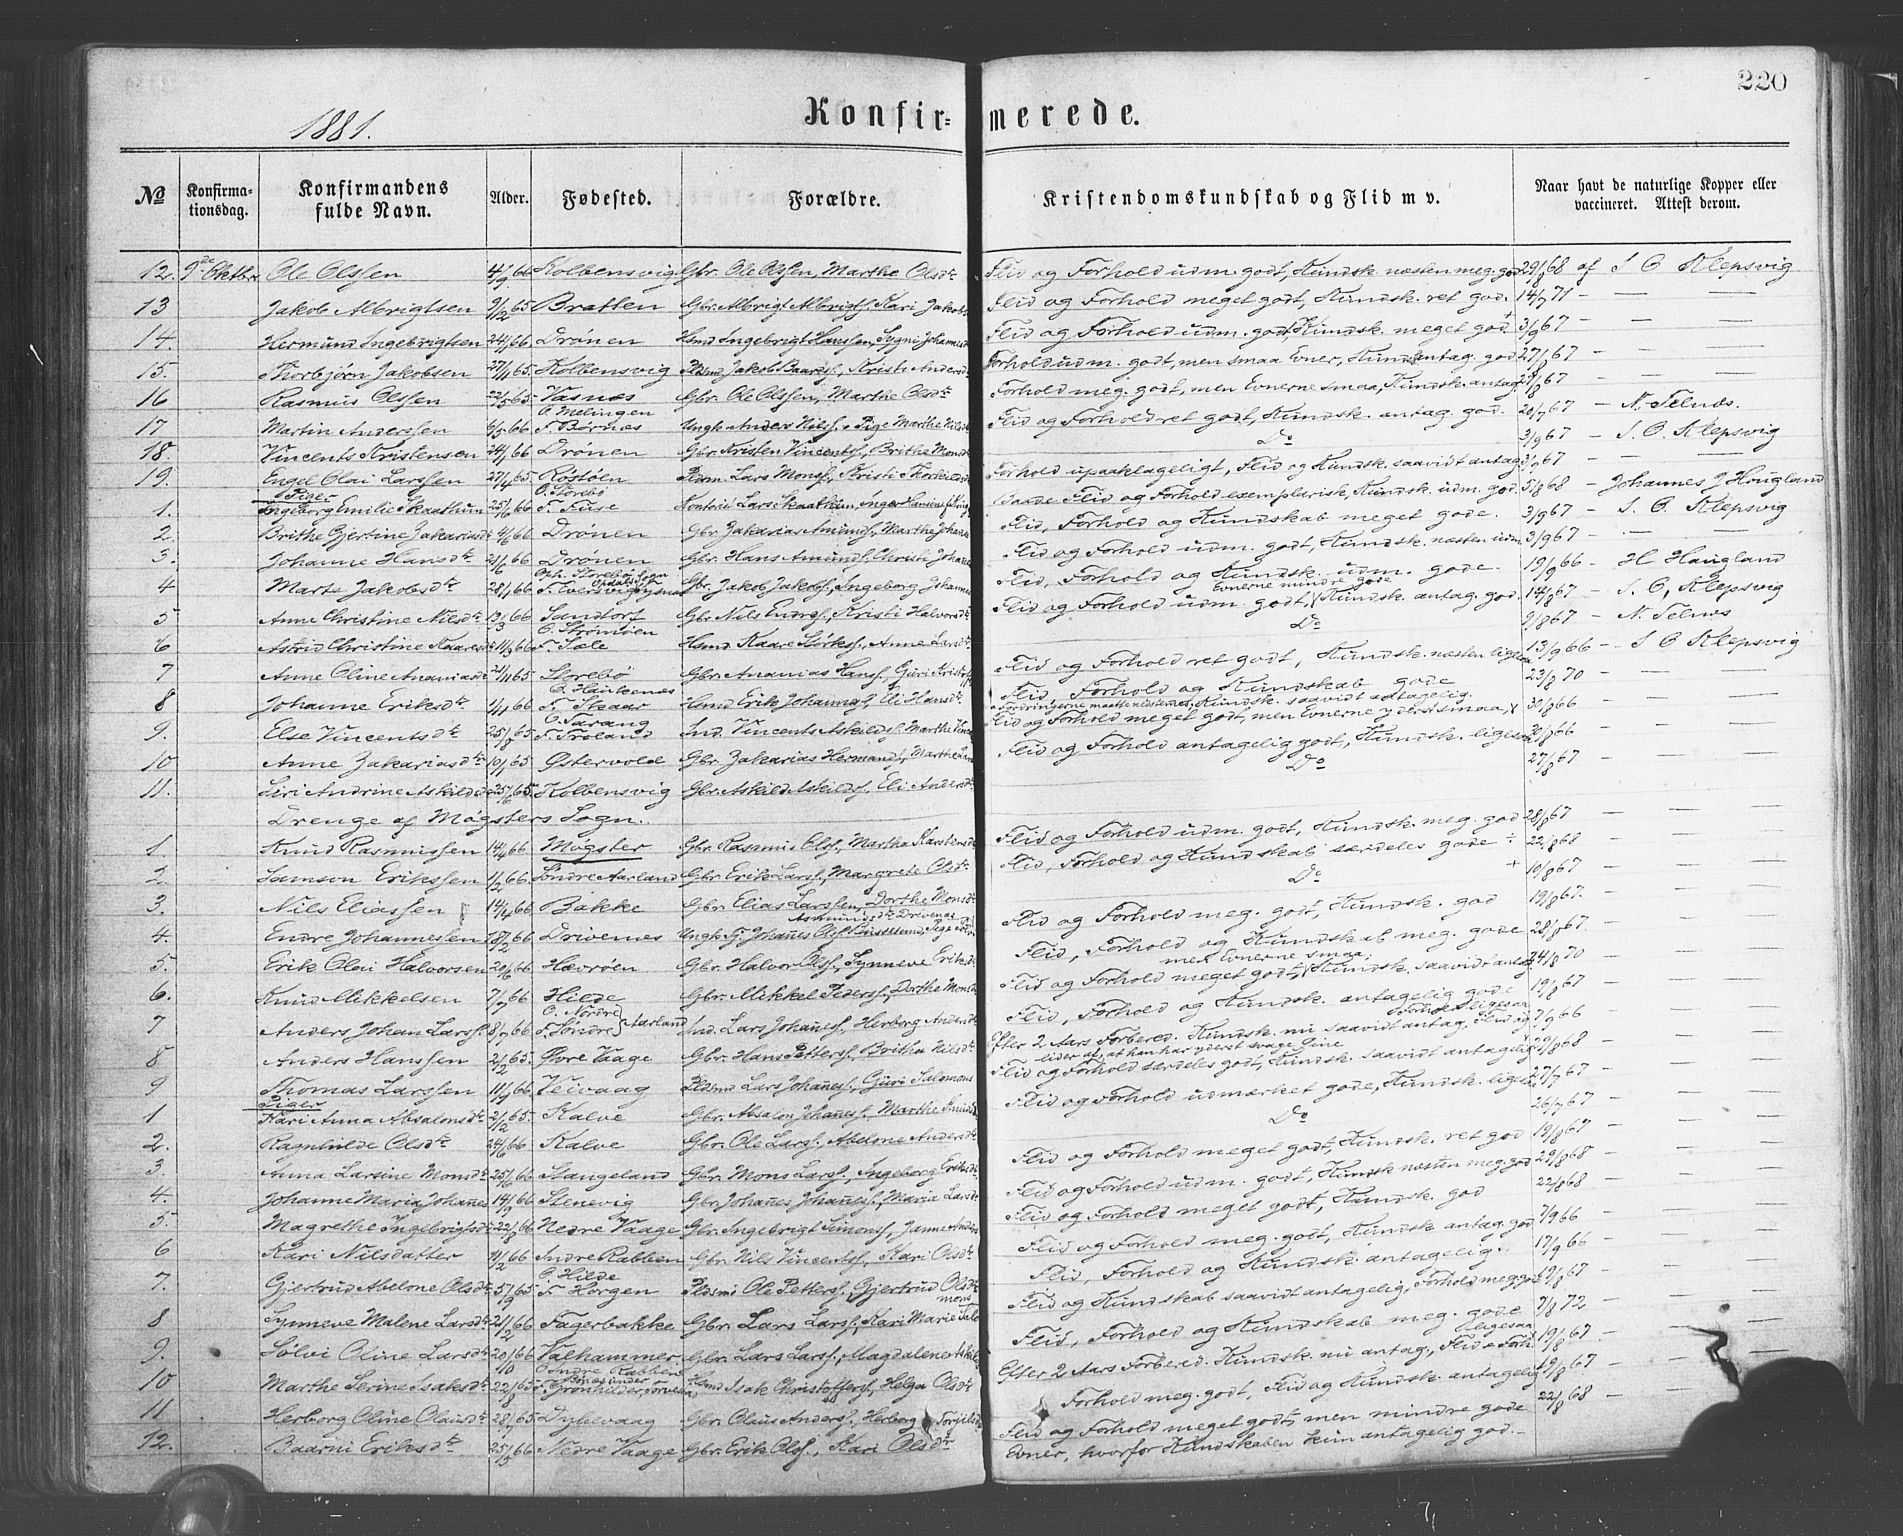 220
1881.
Konfir= merede.
No Konfirma-tionsdag. Konfirmandens fulde Navn. Alder. Fødested. Forældre. Kristendomskundskab og Flid m v. Naar havt de naturlige Kopper eller vaccineret. Attest derom.
12. 9de Oktbr. Ole Olssen 4/9 66 Kolbensvig Gbr. Ole Olssen, Marthe Olsdtr Flid og Forhold udm. godt, Kundsk. næsten meg. god 29/8 68 af S O Klepsvig
13 Jakob Albrigtsen 9/12 65 Bratten Gbr. Albrigt Albrigts., Kari Jakobs Flid og Forhold meget godt, Kundsk. ret god. 14/7 71 — —
14. Hermund Ingebrigtsen 24/1 66 Drönen Hmd Ingebrigt Hanssen, Sygni Flid og Forhold udm. godt, Kundsk. meget god 3/9 67 — —
15. Thorbjørn Jakobsen 27/1 65. Kolbensvig Pldsmd Jakob Baards., Kristi Anders Forhold udm. godt, men smaa Evner, Kundsk. antag. god 27/8 67 — —
16 Rasmus Olssen 22/5 65 Vasnæs Gbr. Ole Olssen, Marthe Olsdtr Forhold meg. godt, men Evnerne smaa, Kundsk. antag. 67 — —
17 Martin Anderssen 6/3 66 O. Melingen F. Börnæs Ungk. Anders Nils. Pige Marthe Nils Flid og Forhold ret godt, Kundsk. antag. god. 20/7 67 — N. Telnæs.
18. Vincents Kristensen 24/1 66 Drönen Gbr. Kristen Vincents, Brithe Mons Do 3/9 67 — S. O. Klepsvig
19. Engel Olai Larssen 27/4 65 Röstöen Pldsm Lars Mons, Kristi Forhold upaaklageligt, Flid og Kundsk. saavidt antag. 3/9 67 — —
Piger
1. Ingeborg Emilie Skaathun 25/6 66 O. Storebø F. Fuse Lars Skaathun, Inger Baade Flid og Forhold exemplarisk, Kundsk. udm. god. 5/8 68 — Johannes J Hougland
2. Brithe Gjertine Zakariasd 4/6 66 Drönen Gbr Zakarias Amunds., Marthe Johan Flid, Forhold og Kundskab meget gode. 3/9 67 — S. O. Klepsvig
3. Johanne Hansdtr 21/6 66 Drönen Gbr. Hans Amunds, Christi Johan Flid og Forhold udm. godt, Kundsk. næsten udm. 3/9 67 — —
4 Marte Jakobsdtr 28/1 66 Gbr. Jakob Jakobs., Ingeborg Johannes Flid, Forhold og Kundsk. udm. gode. 19/9 66 — H Haugland
5 Anne Christine Nilsdtr 19/3 66 Sandtorf Gbr Nils Endres., Kristi Halvorsdtr Flid og Forhold udm. godt, Evnerne mindre gode Kundsk. antag. god. 14/8 67 — S. O, Klepsvig
6 Astrid Christine Kaares 11/3 66 O. Strömöen F. Sæle Hsmd. Kaare Störks., Anne Larsdtr Do 9/8 67 — N. Telnæs
7 Anne Oline Ananias 21/11 65 Storebö Gbr. Ananias Hans., Guri Flid og Forhold ret godt, Kundsk. næsten ligesaa 13/9 66 — S O Klepsvig
8 Johanne Eriksdtr 1/1 66 O. Haukenæs F. Skaar Hsmd Erik Johannes., Eli Hansdtr Flid, Forhold og Kundskab gode 23/8 70 — —
9. Else Vincentsdtr 25/8 65 O. Sarang F. Troland Ind. Vincents Askilds., Marthe Flid og Forhold meget godt, men Evnerne yderst smaa, Kundsk. saavidt antagelig. 30/8 66 — —
10 Anne Zakariasdtr 10/1 65 Östervold Gbr. Zakarias Hermands, Marthe Flid og Forhold antagelig godt, Kundsk. ligesaa 66 — —
11. Siri Andrine Askilds 25/6 65. Kolbensvig Gbr. Askild Askilds, Eli Andersdtr Do 27/8 67 — —
Drenge af Møgsters Sogn.
1. Knud Rasmussen 14/4 66 Møgster Gbr. Rasmus Ols., Martha Karstens Flid og Forhold udm. godt, Kundsk. meg. god 28/8 67 — —
2. Samson Erikssen 1/2 66. Söndre Aarland Gbr. Erik Lars., Margrete Olsdtr Flid, Forhold og Kundskab særdeles gode 22/8 68 — —
3. Nils Eliassen 14/4 66 Bakke Gbr. Elias Larssen, Dorthe Monsdtr Do 10/8 67 — —
4. Endre Johannessen 18/2 66 Drivenes Ungk. Johanes Ols. Flid og Forhold meg. godt, Kundsk. god 19/8 67. — —
5. Erik Olai Halvorsen 20/6 66 Hævröen Gbr. Halvor Ols., Synneve Eriks Flid, Forhold og Kundskab meg. gode 28/8 67. — —
6. Knud Mikkelsen 7/7 66 Hilde Gbr. Mikkel Peders., Dorthe Mons Flid og Forhold meget godt, men Evnerne smaa; Kundsk. saavidt antag. 24/8 70 — —
7 Anders Johan Lars. 8/7 66 O. Nordre F. Söndre Aarland Ind. Lars Johanes., Herborg Anders Flid, Forhold og Kundsk. antagelig gode 19/8 67 — —
8 Anders Hanssen 2/2 65. Övre Vaage Gbr. Hans Petters., Britha Nilsdtr Efter 2 Aars Forbered. Kundsk. nu saavidt antag, Flid og Forhold ligesaa 7/9 66 — —
9 Thomas Larssen 11/1 66 Veivaag Pldsmd Lars Johanes., Guri Salomons lider af, at han har yderst svage Öine Flid og Forhold særdeles godt, Kundsk. saavidt antagelig 29/8 68 — —
Piger
1 Kari Anna Absalonsdtr 2/2 65. Kalve Gbr. Absalon Johanes., Marthe Flid og Forhold udmærket gode, Kundsk. ligesaa 27/7 67 — —
2. Ragnhilde Olsdtr 24/1 66 Kalve Gbr. Ole Lars., Abelone Andersdtr Do 26/7 67 — —
3. Anna Larsine Monsdtr 25/6 66 Stangeland Gbr. Mons Lars., Ingeborg Eriks Flid og Forhold meget godt, Kundsk. ret god 19/8 67 — —
4. Johanne Maria Johanes 14/9 66 Stenevig Gbr. Johanes Johanes., Maria Lars Flid og Forhold udm. godt, Kundsk næsten meg god 29/8 68 — —
5. Magrethe Ingebrigts 22/8 66 Nedre Vaage Gbr. Ingebrigt Simons., Janne Flid og Forhold meget godt, Kundsk. god 22/8 68 — —
6 Kari Nilsdatter 11/2 66 Indre Rabben Gbr. Nils Vincents., Kari Olsdtr Flid og Forhold meg. godt, Kundsk. antag. god 7/9 66 — —
7. Gjertrud Abelone Olsdtr 5/9 65 O. Hilde F. Horgen Pldsmd Ole Petters., Gjertrud Olsdtr Flid, Forhold og Kundsk. antagelig. 17/9 66 — —
8 Synneve Malene Larsdtr 21/2 66 Fagerbakke Gbr. Lars Lars., Kari Marie Flid og Kundskab saavidt antagelig, Forhold meg god 19/8 67 — —
9. Sølvi Oline Larsdtr 20/10 66 Valhammer Gbr. Lars Lars., Magdalene Flid, Forhold og Kundskab meg. gode 7/8 72 — —
10 Marthe Serine Isaksdtr 22/8 65 O. Indre Rabben Hsmd Isak Christoffers., Helga Olsdtr Efter 2 Aars Forbered. Kundsk. nu antag, Flid o Forh. ligesaa 19/8 67. —
11 Herborg Oline Olausdtr 28/7 65 Dybevaag Gbr. Olaus Anders., Herborg Forhold meg. godt, Flid og Kundsk. antagelig 19/8 67 —
12. Baarni Eriksdtr 25/3 66 Nedre Vaage Gbr. Erik Ols., Kari Olsdtr Flid og Forhold meget godt, men mindre gode 22/8 68 —
Evner, hvorfor Kundskaben kun antagelig god.